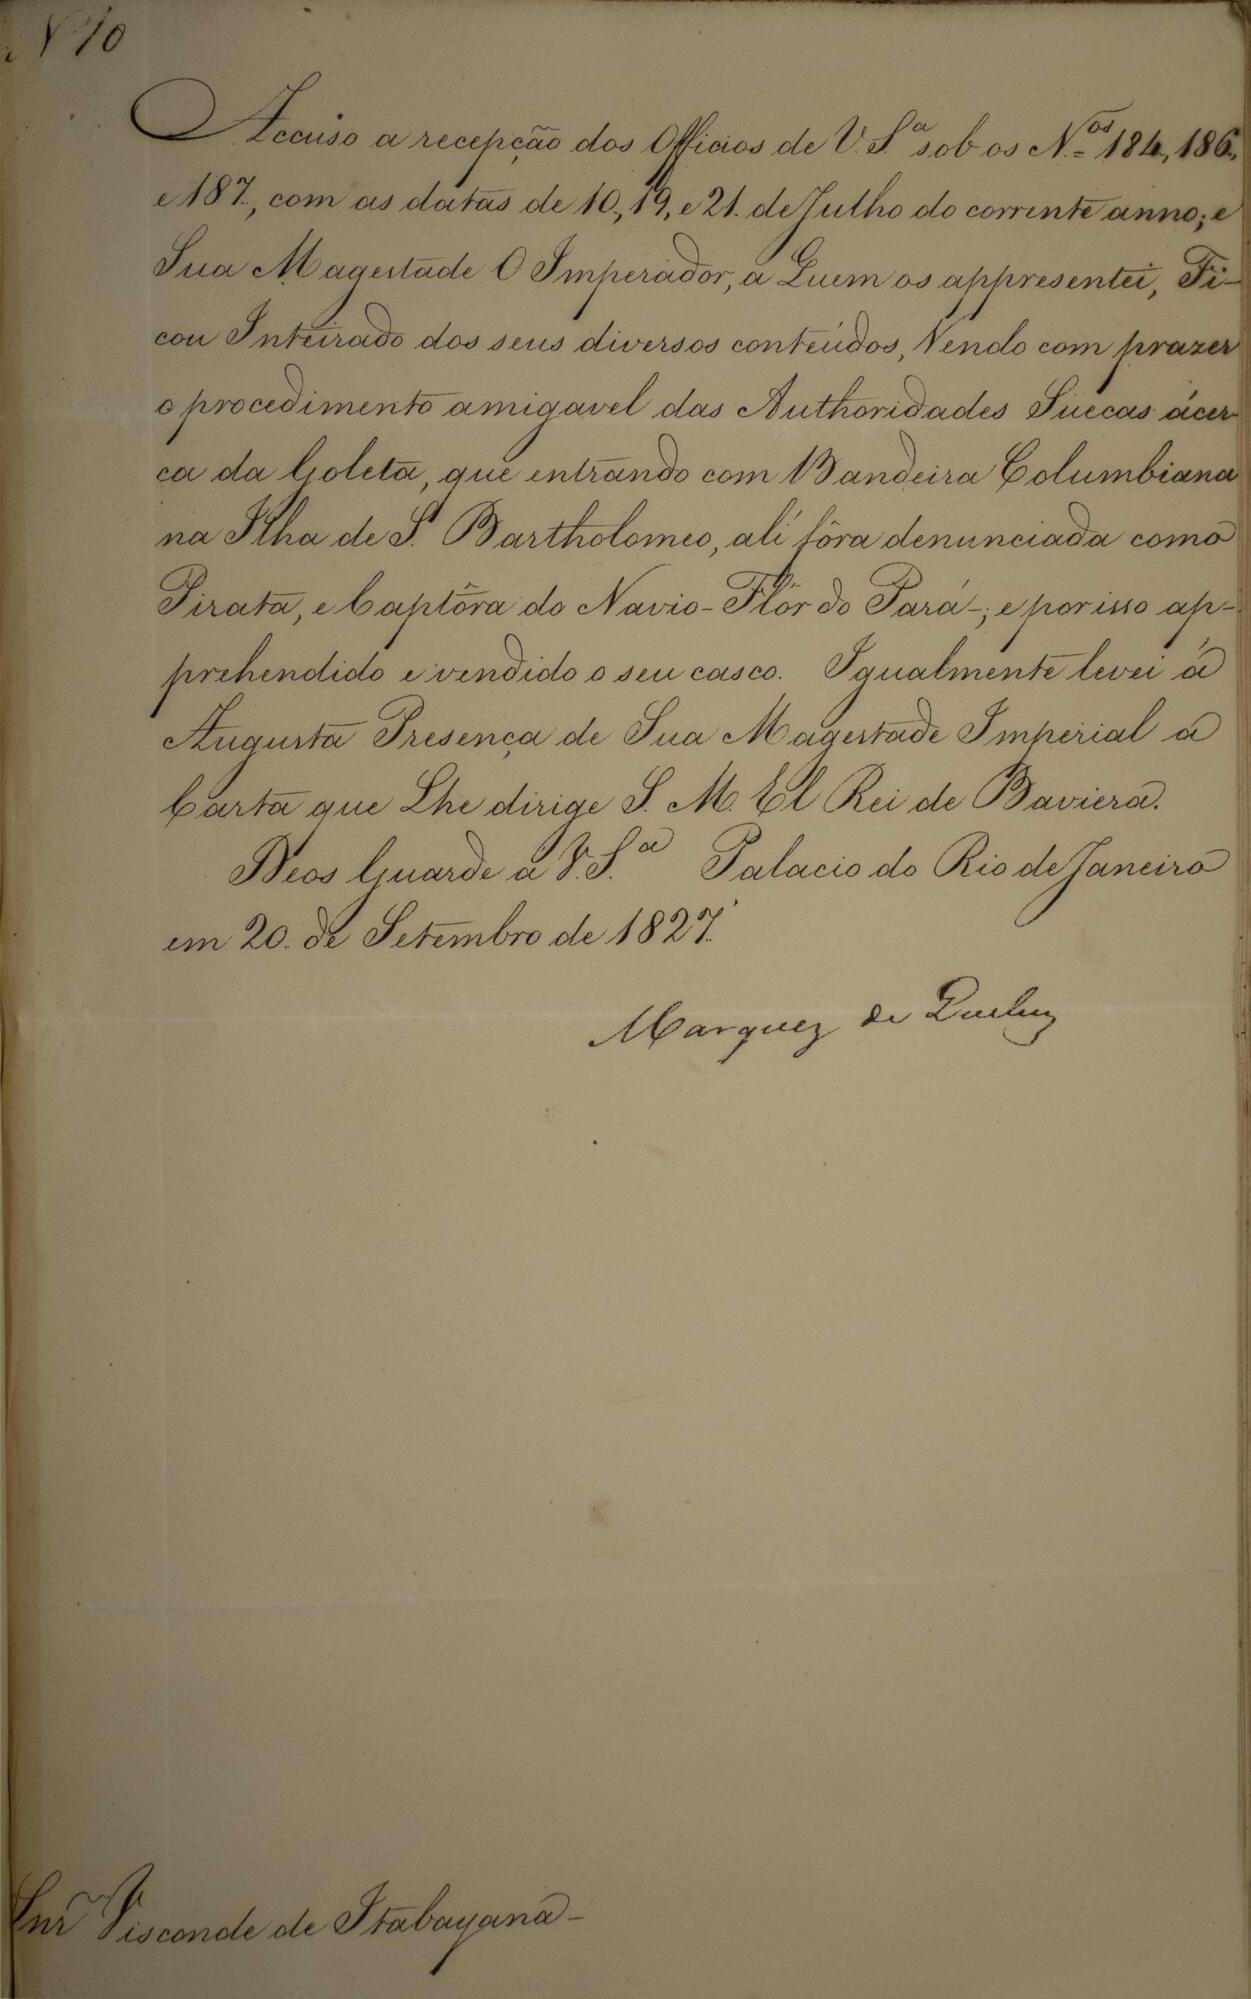 N 10
Accuso a recepção dos Officios de V. S.ª sob os N.os 184, 186,
e 187, com as datas de 10, 19, e 21. de Julho do corrente anno; e
Sua Magestade O Imperador, a Quem os appresentei, Fi-
cou Inteirado dos seus diversos conteúdos, Vendo com prazer
o procedimento amigavel das Authoridades Suecas ácer-
ca da Goleta, que entrando com Bandeira Columbiana
na Ilha de S. Bartholomeo, alí fôra denunciada como
Pirata, e Captôra do Navio - Flôr do Pará -; e por isso ap-
prehendido e vendido o seu casco. Igualmente levei á
Augusta Presença de Sua Magestade Imperial a
Carta que Lhe dirige S. M. El Rei de Baviera.
Deos Guarde a V. S.ª Palacio do Rio de Janeiro
em 20. de Setembro de 1827.
Marquez de Queluz
Snr Visconde de Itabayana -